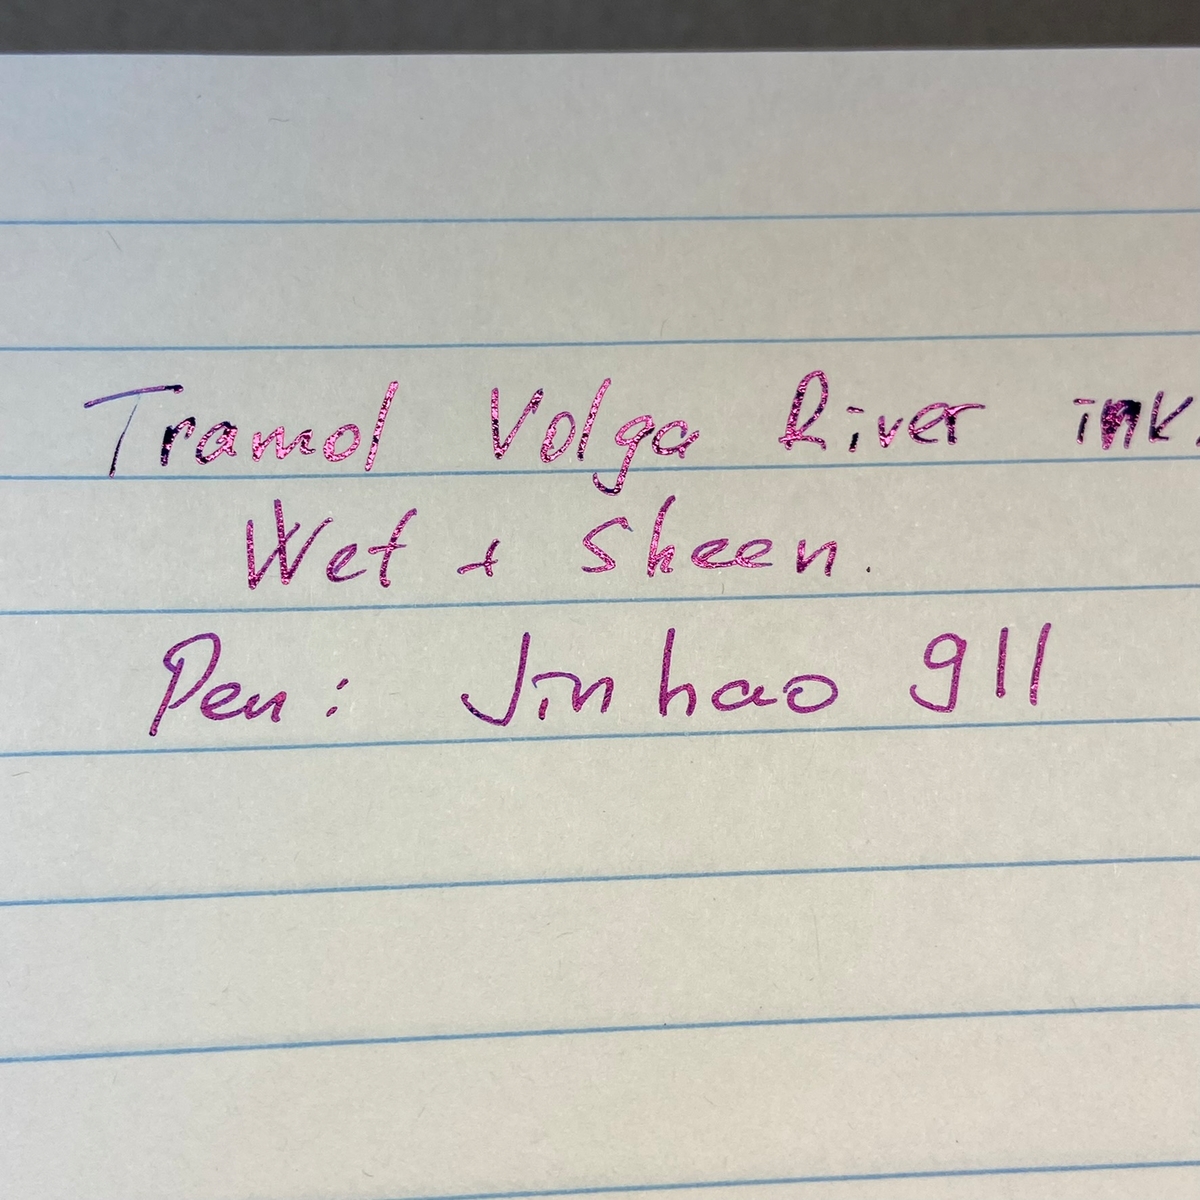 Tramol Volga River ink.
Wet + Sheen.
Pen: Jinhao 911